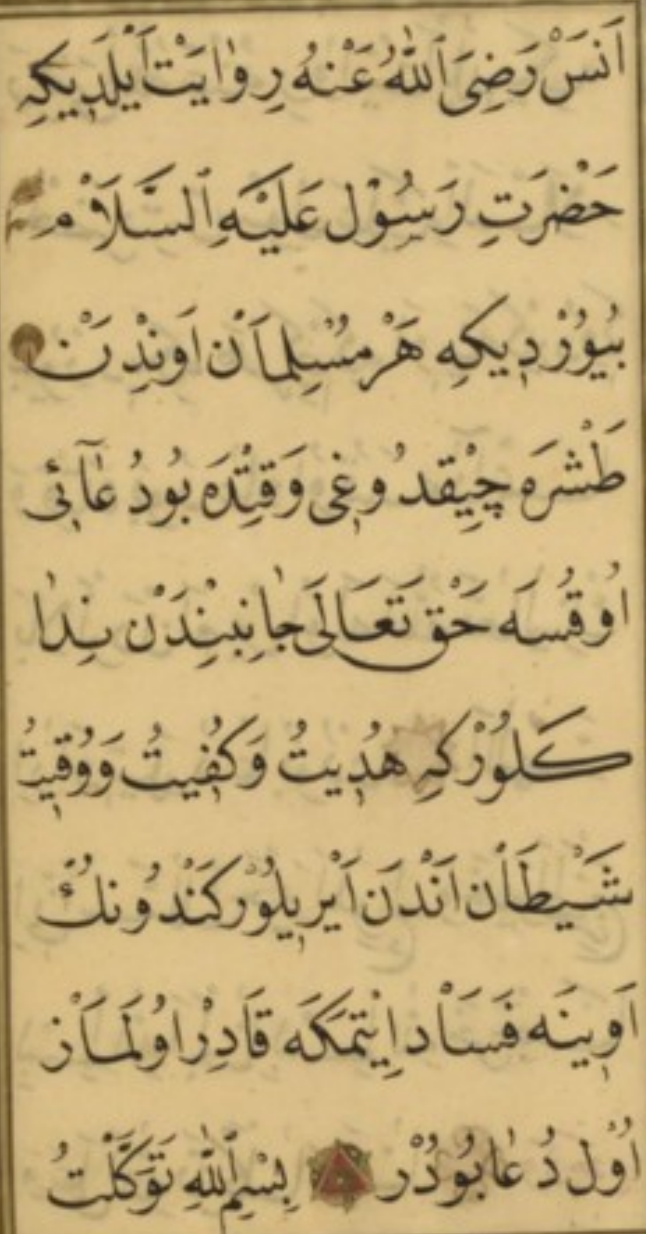 اَنَسْ رَضِیَ ٱللّٰهُ عَنْهُ رِوٰايَتْ اَيْلَدِيكِهِ
حَضْرَتِ رَسُوْل عَلَيْهِ ٱلسَّلَاْم
بُيُوْرْدِيكِهِ هَرْ مُسْلِمَاْن اَوِنْدِنْ
طَشْرَه چِيْقِدُوغِی وَقِتْدَه بُودُعٰآئِی
اُوقُسَه حَقْ تَعَالَی جٰانِبِنْدَنْ نِدٰا
كَلُوْرْكِهِ هُدِيتُ وَكُفِيتُ وَوُقِيتُ
شَيْطَاْن اَنْدَن اَيْرِيلُوْر كَنْدُونُكْ
اَوِينَه فَسَاْد اِيْتمَكَه قَادِرْ اوُلَمَاْز
اُوْل دُعٰا بُودُرْ بِسْمِ ٱللّٰهِ تَوَكَّلْتُ